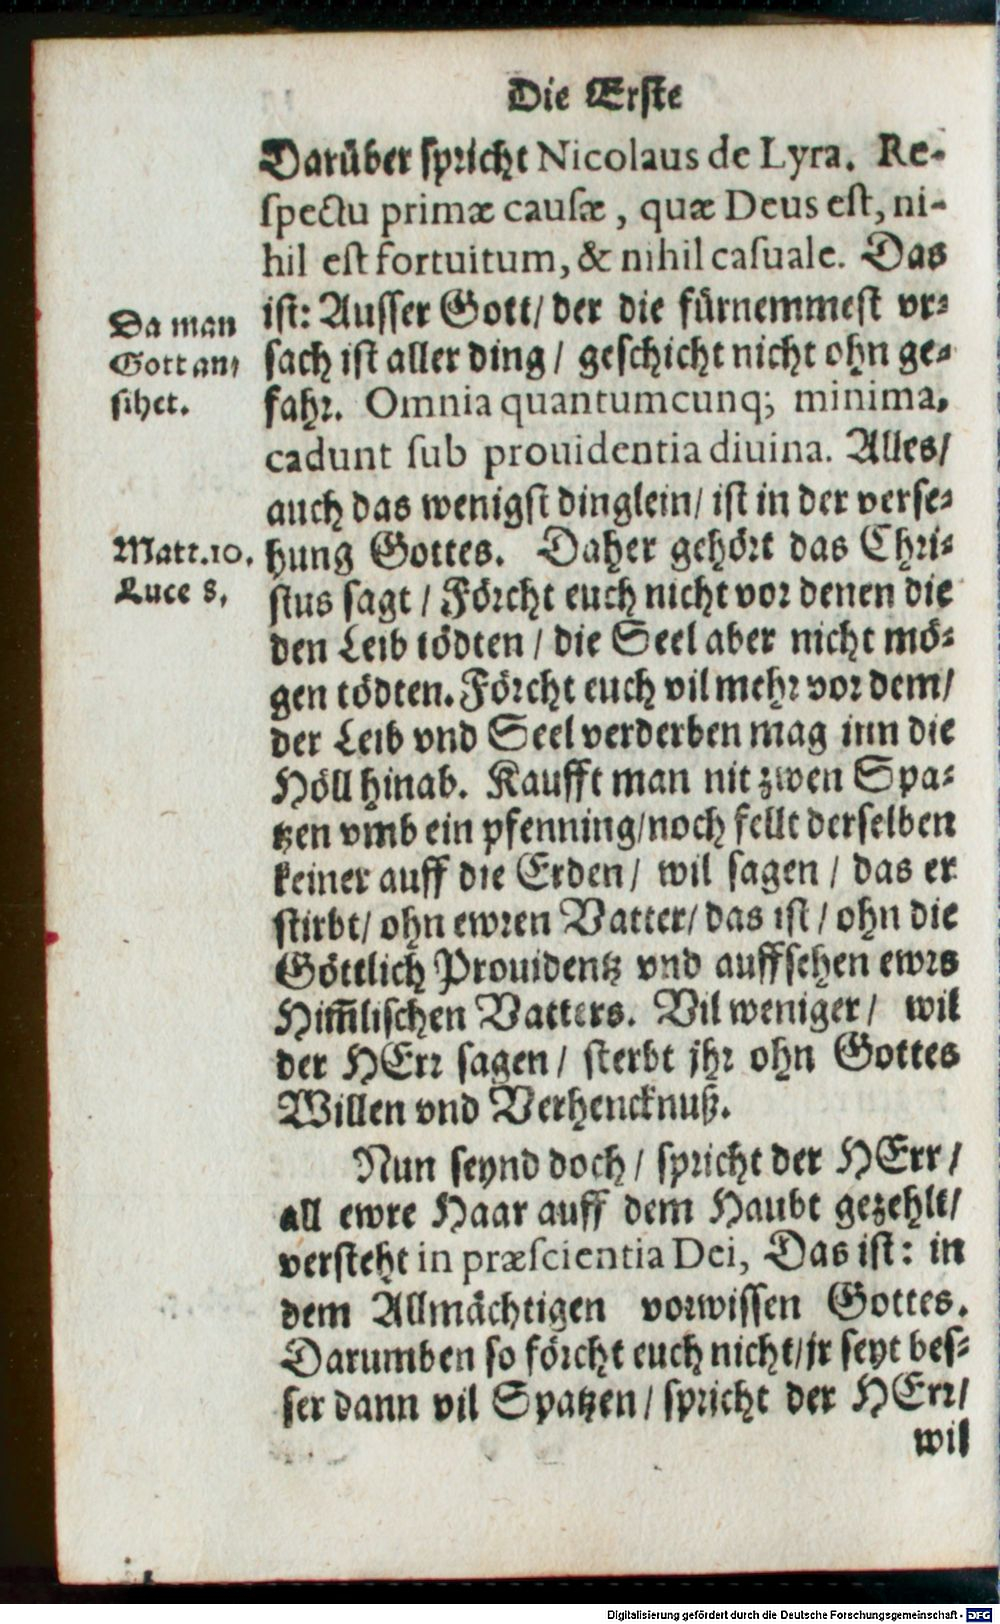 Die Erste
Darüber spricht Nicolaus de Lyra. Re-
spectu primæ causæ, quæ Deus est, ni-
hil est fortuitum, & nihil casuale. Das
ist: Ausser Gott/ der die fürnemmest vr-
sach ist aller ding / geschicht nicht ohn ge-
fahr. Omnia quantumcunq; minima,
cadunt sub prouidentia diuina. Alles/
auch das wenigst dinglein/ ist in der verse-
hung Gottes. Daher gehört das Chri-
stus sagt / Förcht euch nicht vor denen die
den Leib tödten / die Seel aber nicht mö-
gen tödten. Förcht euch vil mehr vor dem/
der Leib vnd Seel verderben mag inn die
Höll hinab. Kaufft man nit zwen Spa-
tzen vmb ein pfenning/noch fellt derselben
keiner auff die Erden/ wil sagen / das er
stirbt/ ohn ewren Vatter/ das ist / ohn die
Göttlich Prouidentz vnd auffsehen ewrs
Him̄lischen Vatters. Vil weniger/ wil
der HErr sagen / sterbt jhr ohn Gottes
Willen vnd Verhencknuß.
Nun seynd doch / spricht der HErr/
all ewre Haar auff dem Haubt gezehlt/
versteht in præscientia Dei, Das ist: in
dem Allmächtigen vorwissen Gottes.
Darumben so förcht euch nicht/jr seyt bes-
ser dann vil Spatzen / spricht der HErr/
wil
Da man
Gott an-
sihet.
Matt.10.
Luce 8.
Digitalisierung gefördert durch die Deutsche Forschungsgemeinschaft - DFG